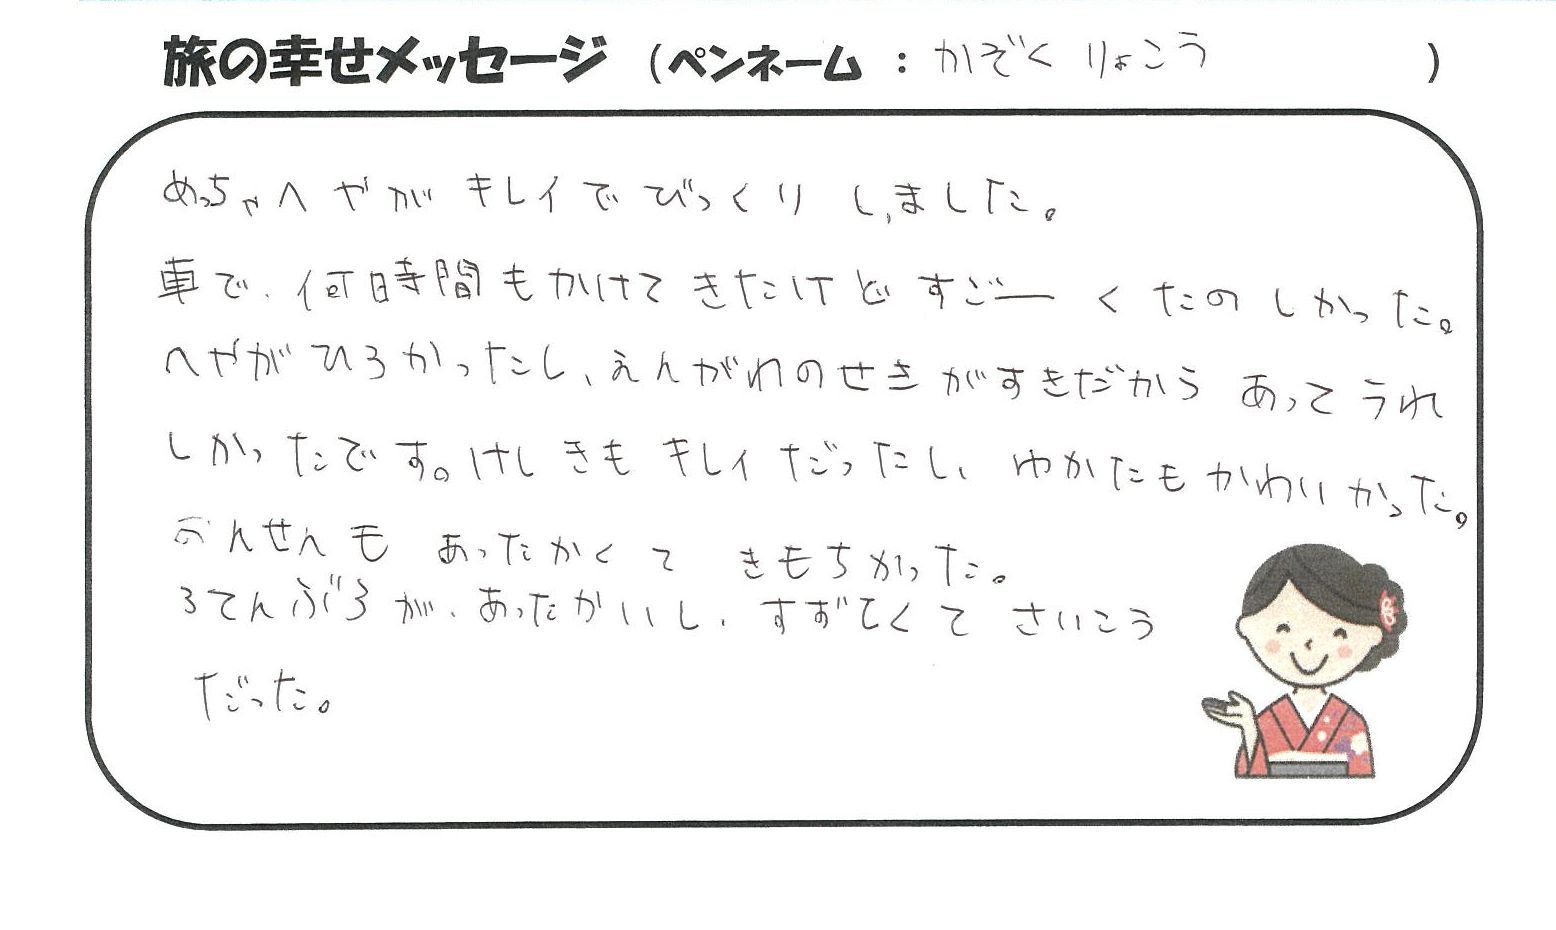 旅の幸せメッセージ (ペンネーム : かぞく りょこう )
めっちゃへやがキレイでびっくりしました。
車で、何時間もかけてきたけどすごーくたのしかった。
へやがひろかったし、えんがわのせきがすきだからあってうれ
しかったです。けしきもキレイだったし、ゆかたもかわいかった。
おんせんもあったかくてきもちかった。
ろてんぶろが、あったかいし、すずしくてさいこう
だった。